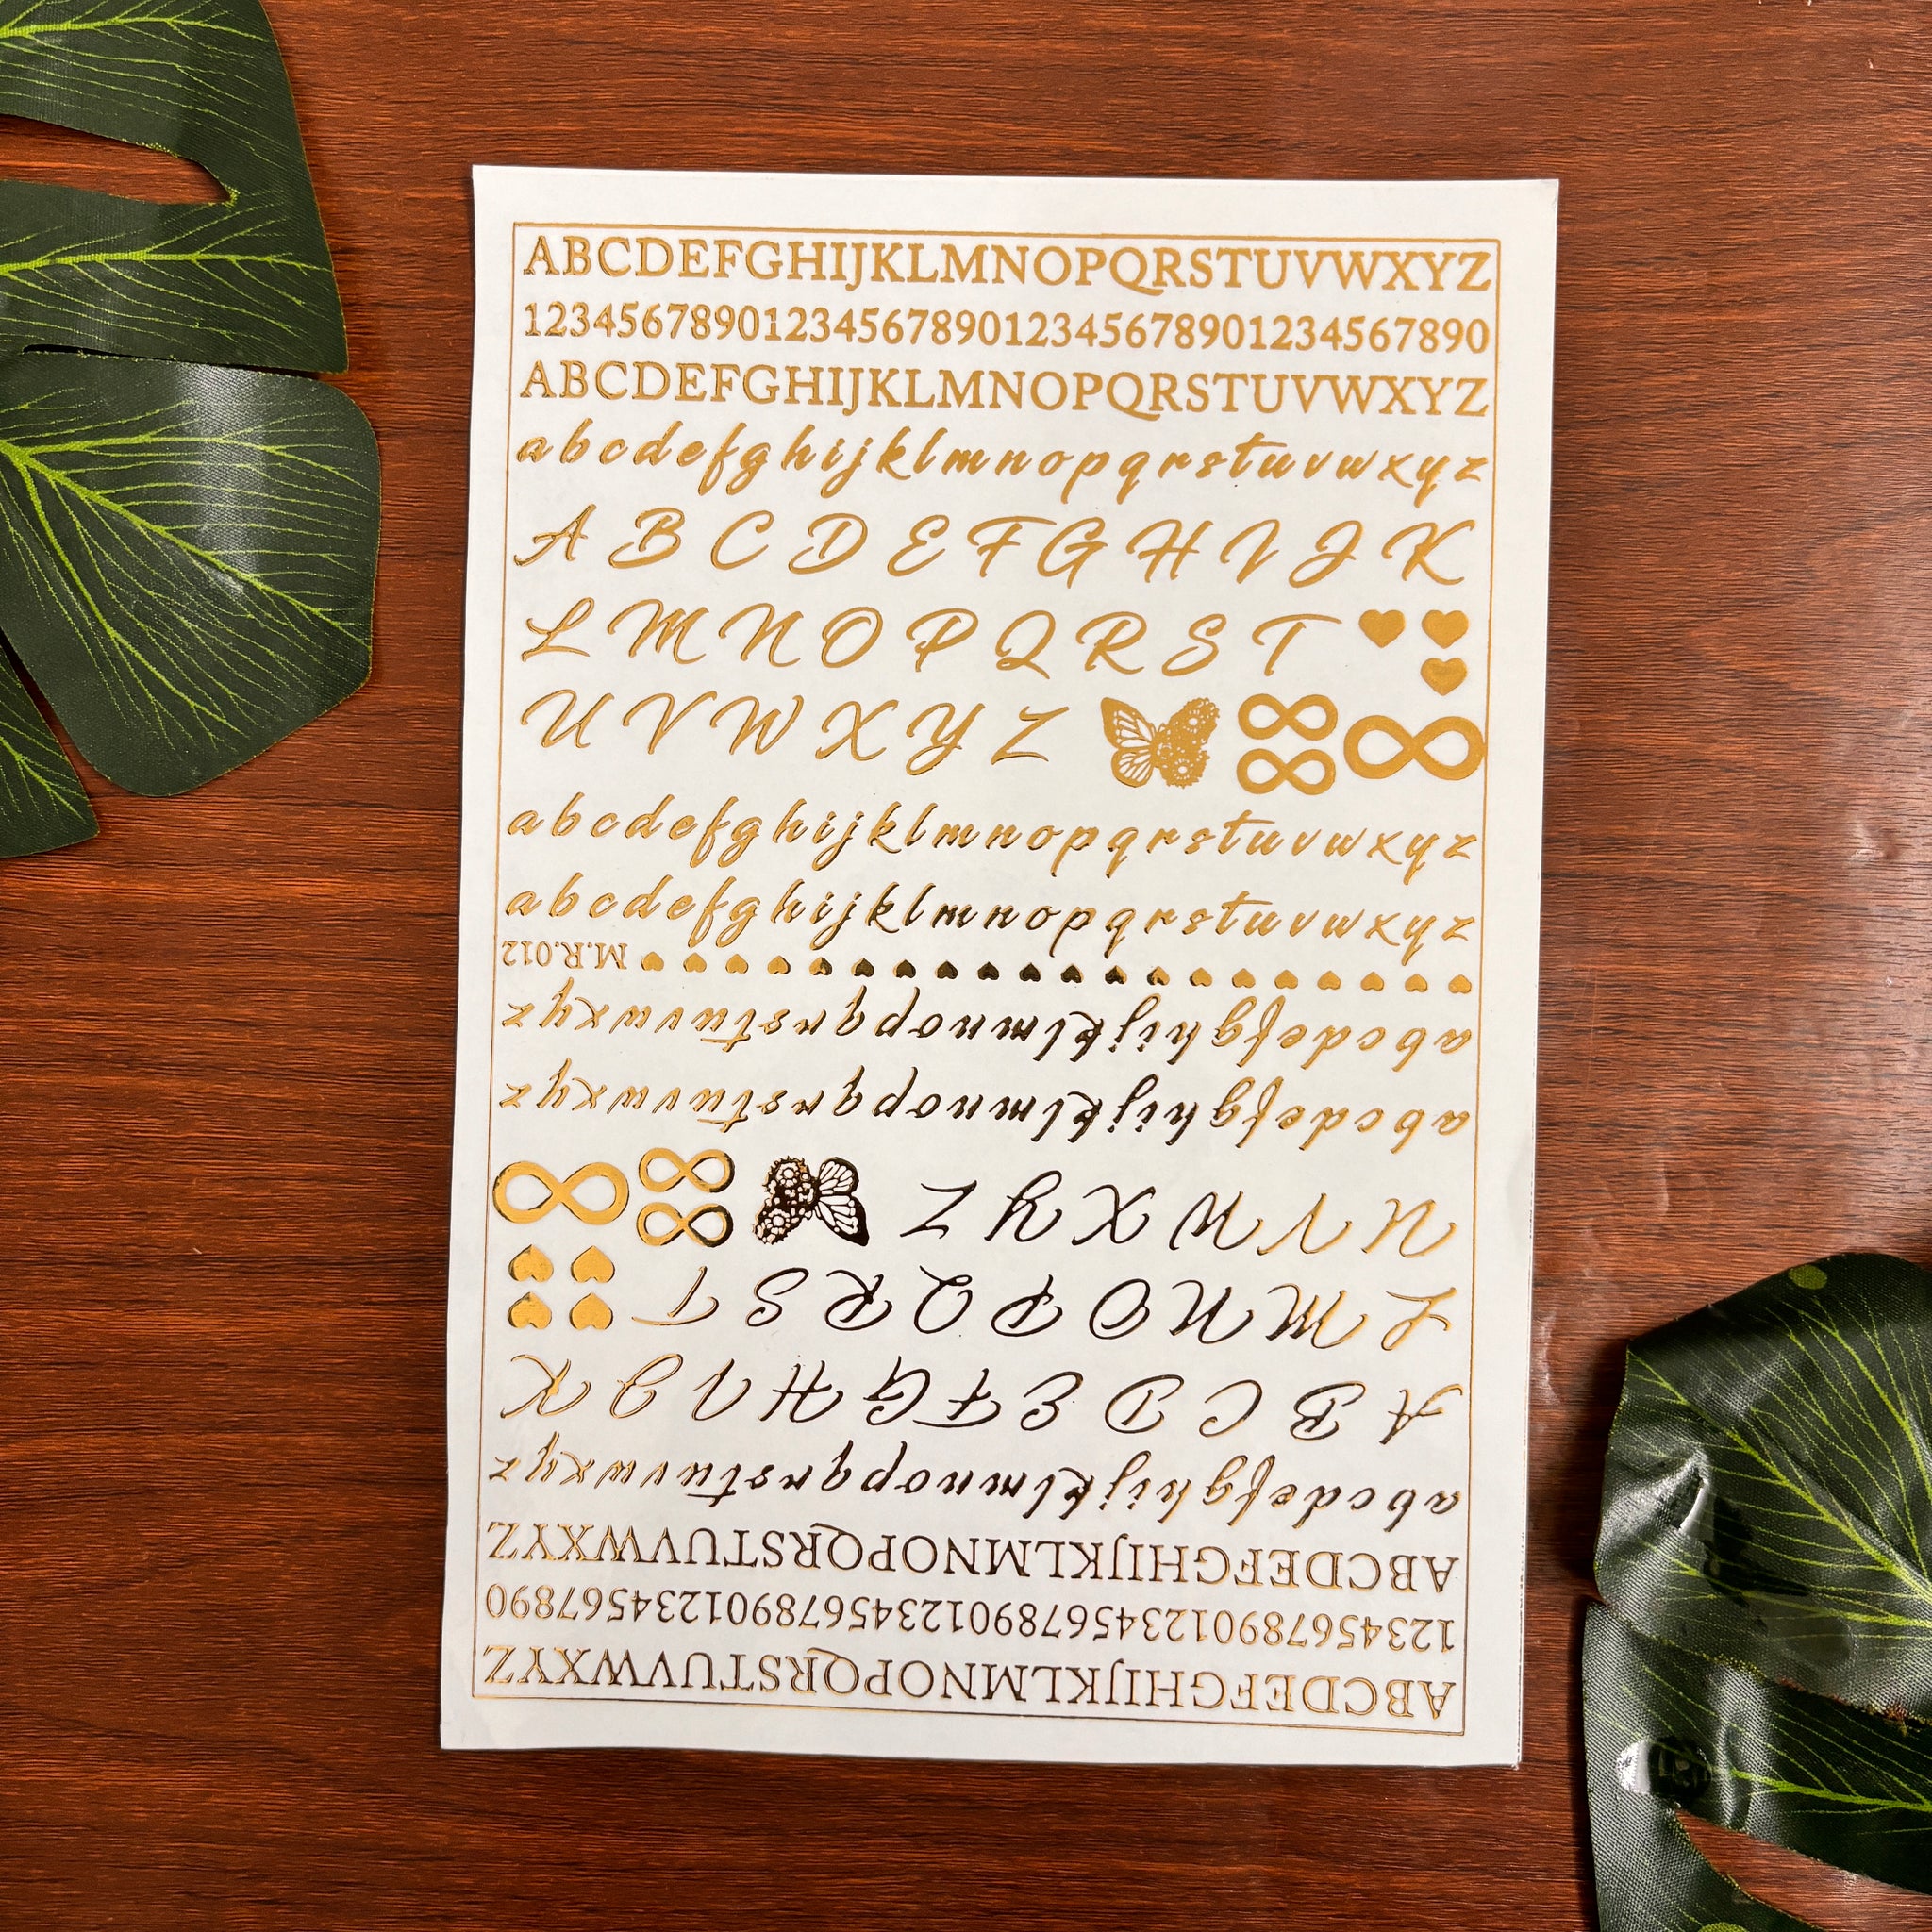 ABCDEFGHIJKLMNOPQRSTUVWXYZ
1234567890123456789012345678901234567890
ABCDEFGHIJKLMNOPQRSTUVWXYZ
abcdefghijklmnopqrstuvwxyz
A B C D E F G H I J K
L M N O P Q R S T
U V W X Y Z
abcdefghijklmnopqrstuvwxyz
abcdefghijklmnopqrstuvwxyz
M.R.012
abcdefghijklmnopqrstuvwxyz
abcdefghijklmnopqrstuvwxyz
U V W X Y Z
L M N O P Q R S T
A B C D E F G H I J K
abcdefghijklmnopqrstuvwxyz
ABCDEFGHIJKLMNOPQRSTUVWXYZ
1234567890123456789012345678901234567890
ABCDEFGHIJKLMNOPQRSTUVWXYZ